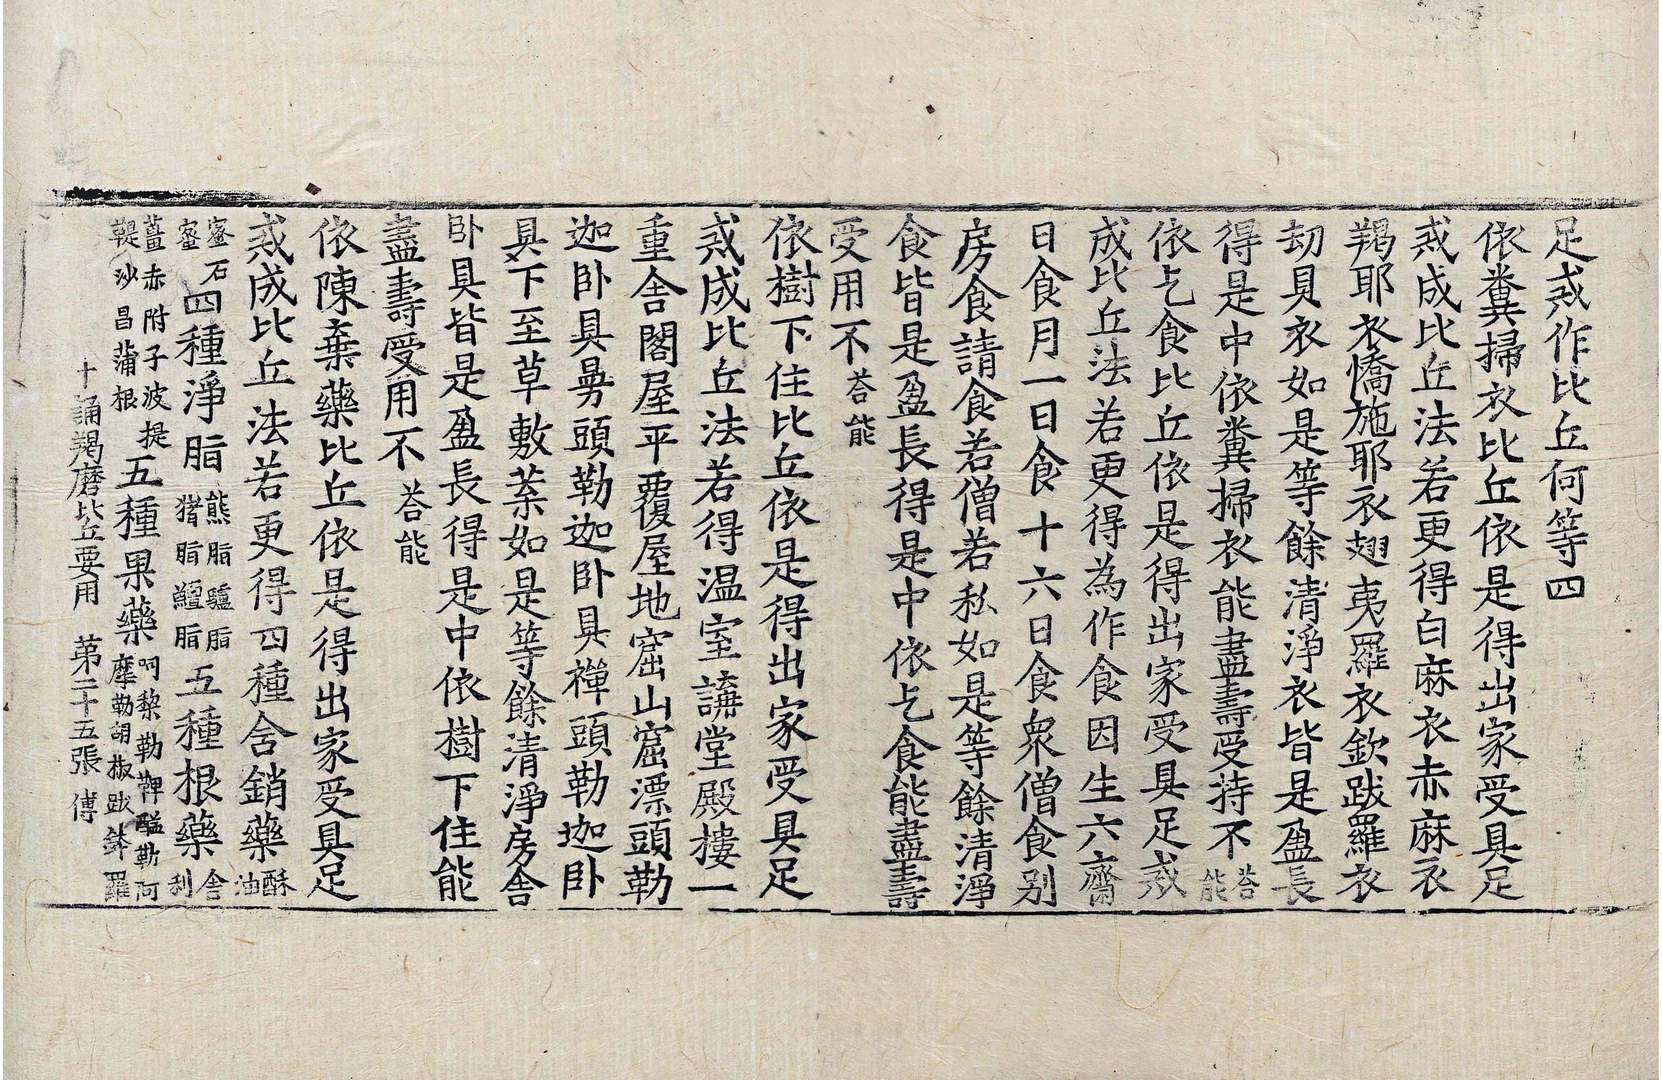 足戒作比丘何等四
依糞掃衣比丘依是得出家受具足
戒成比丘法若更得白麻衣赤麻衣
羯耶衣憍施耶衣翅夷羅衣欽跋羅衣
劫貝衣如是等餘清淨衣皆是盈長
得是中依糞掃衣能盡壽受持不荅能
依乞食比丘依是得出家受具足戒
成比丘法若更得為作食因生六齋
日食月一日食十六日食衆僧食别
房食請食若僧若私如是等餘清淨
食皆是盈長得是中依乞食能盡壽
受用不荅能
依樹下住比丘依是得出家受具足
戒成比丘法若得温室講堂殿樓一
重舍閣屋平覆屋地窟山窟漂頭勒
迦卧具㬅頭勒迦卧具禪頭勒迦卧
具下至草敷葉如是等餘清淨房舍
卧具皆是盈長得是中依樹下住能
盡壽受用不荅能
依陳棄藥比丘依是得出家受具足
戒成比丘法若更得四種含銷藥酥油
蜜石蜜四種淨脂熊脂驢脂猪脂鱣脂五種根藥舍利
薑赤附子波提鞮沙昌蒲根五種果藥呵黎勒鞞醯勒阿摩勒胡椒跋鉢羅
十誦羯磨比丘要用 第二十五張 傅